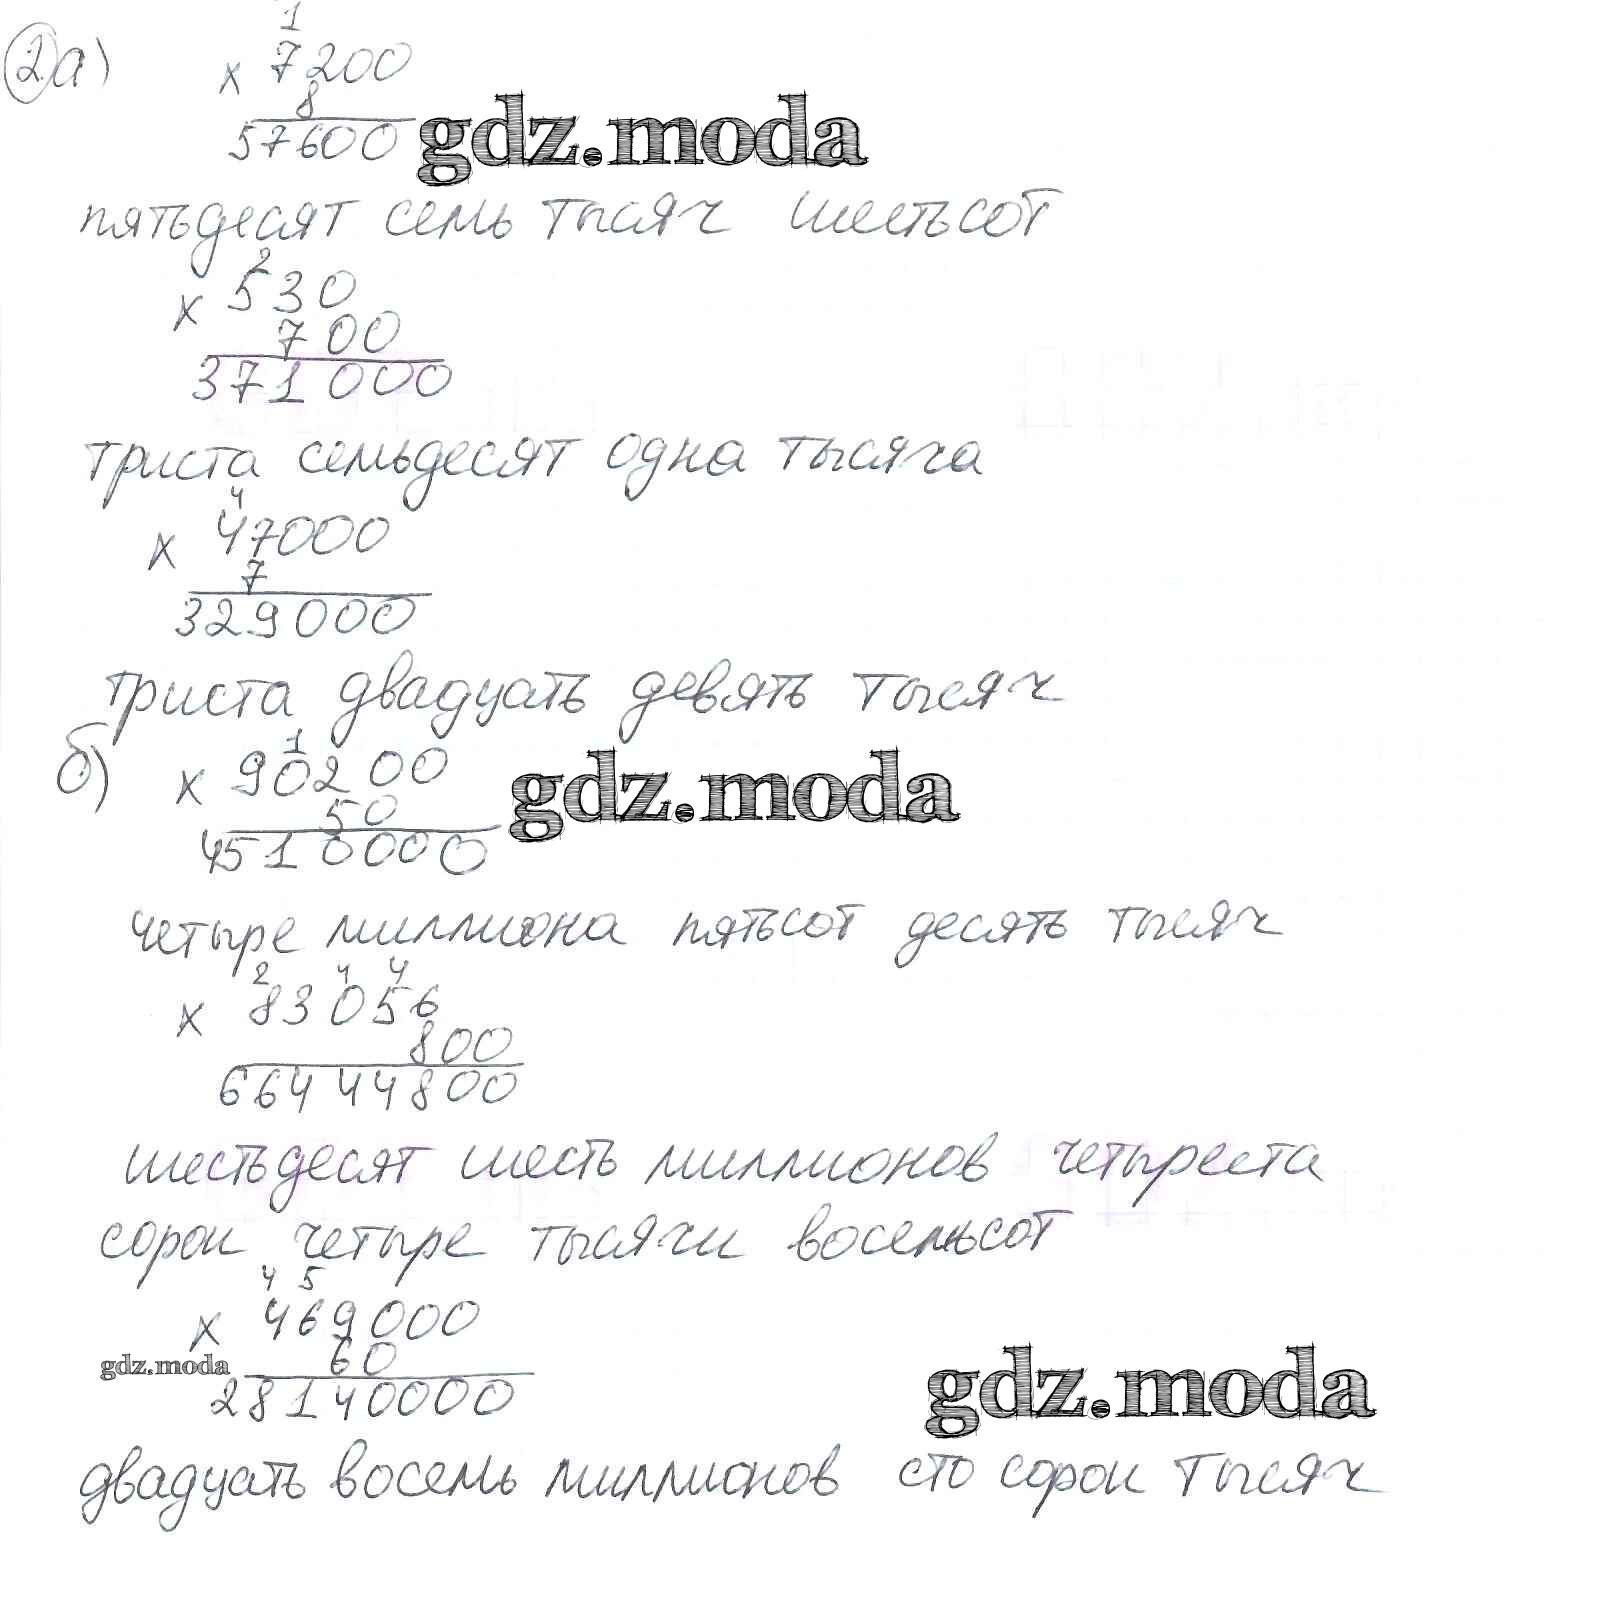 1
2 а) × 7200
8
57600 gdz.moda
пятьдесят семь тысяч шестьсот
2
× 530
700
371000
триста семьдесят одна тысяча
4
× 47000
7
329000
триста двадцать девять тысяч
1
б) × 90200
50 gdz.moda
4510000
четыре миллиона пятьсот десять тысяч
2 4 4
× 83056
800
66444800
шестьдесят шесть миллионов четыреста
сорок четыре тысячи восемьсот
4 5
× 469000
gdz.moda 60
28140000 gdz.moda
двадцать восемь миллионов сто сорок тысяч